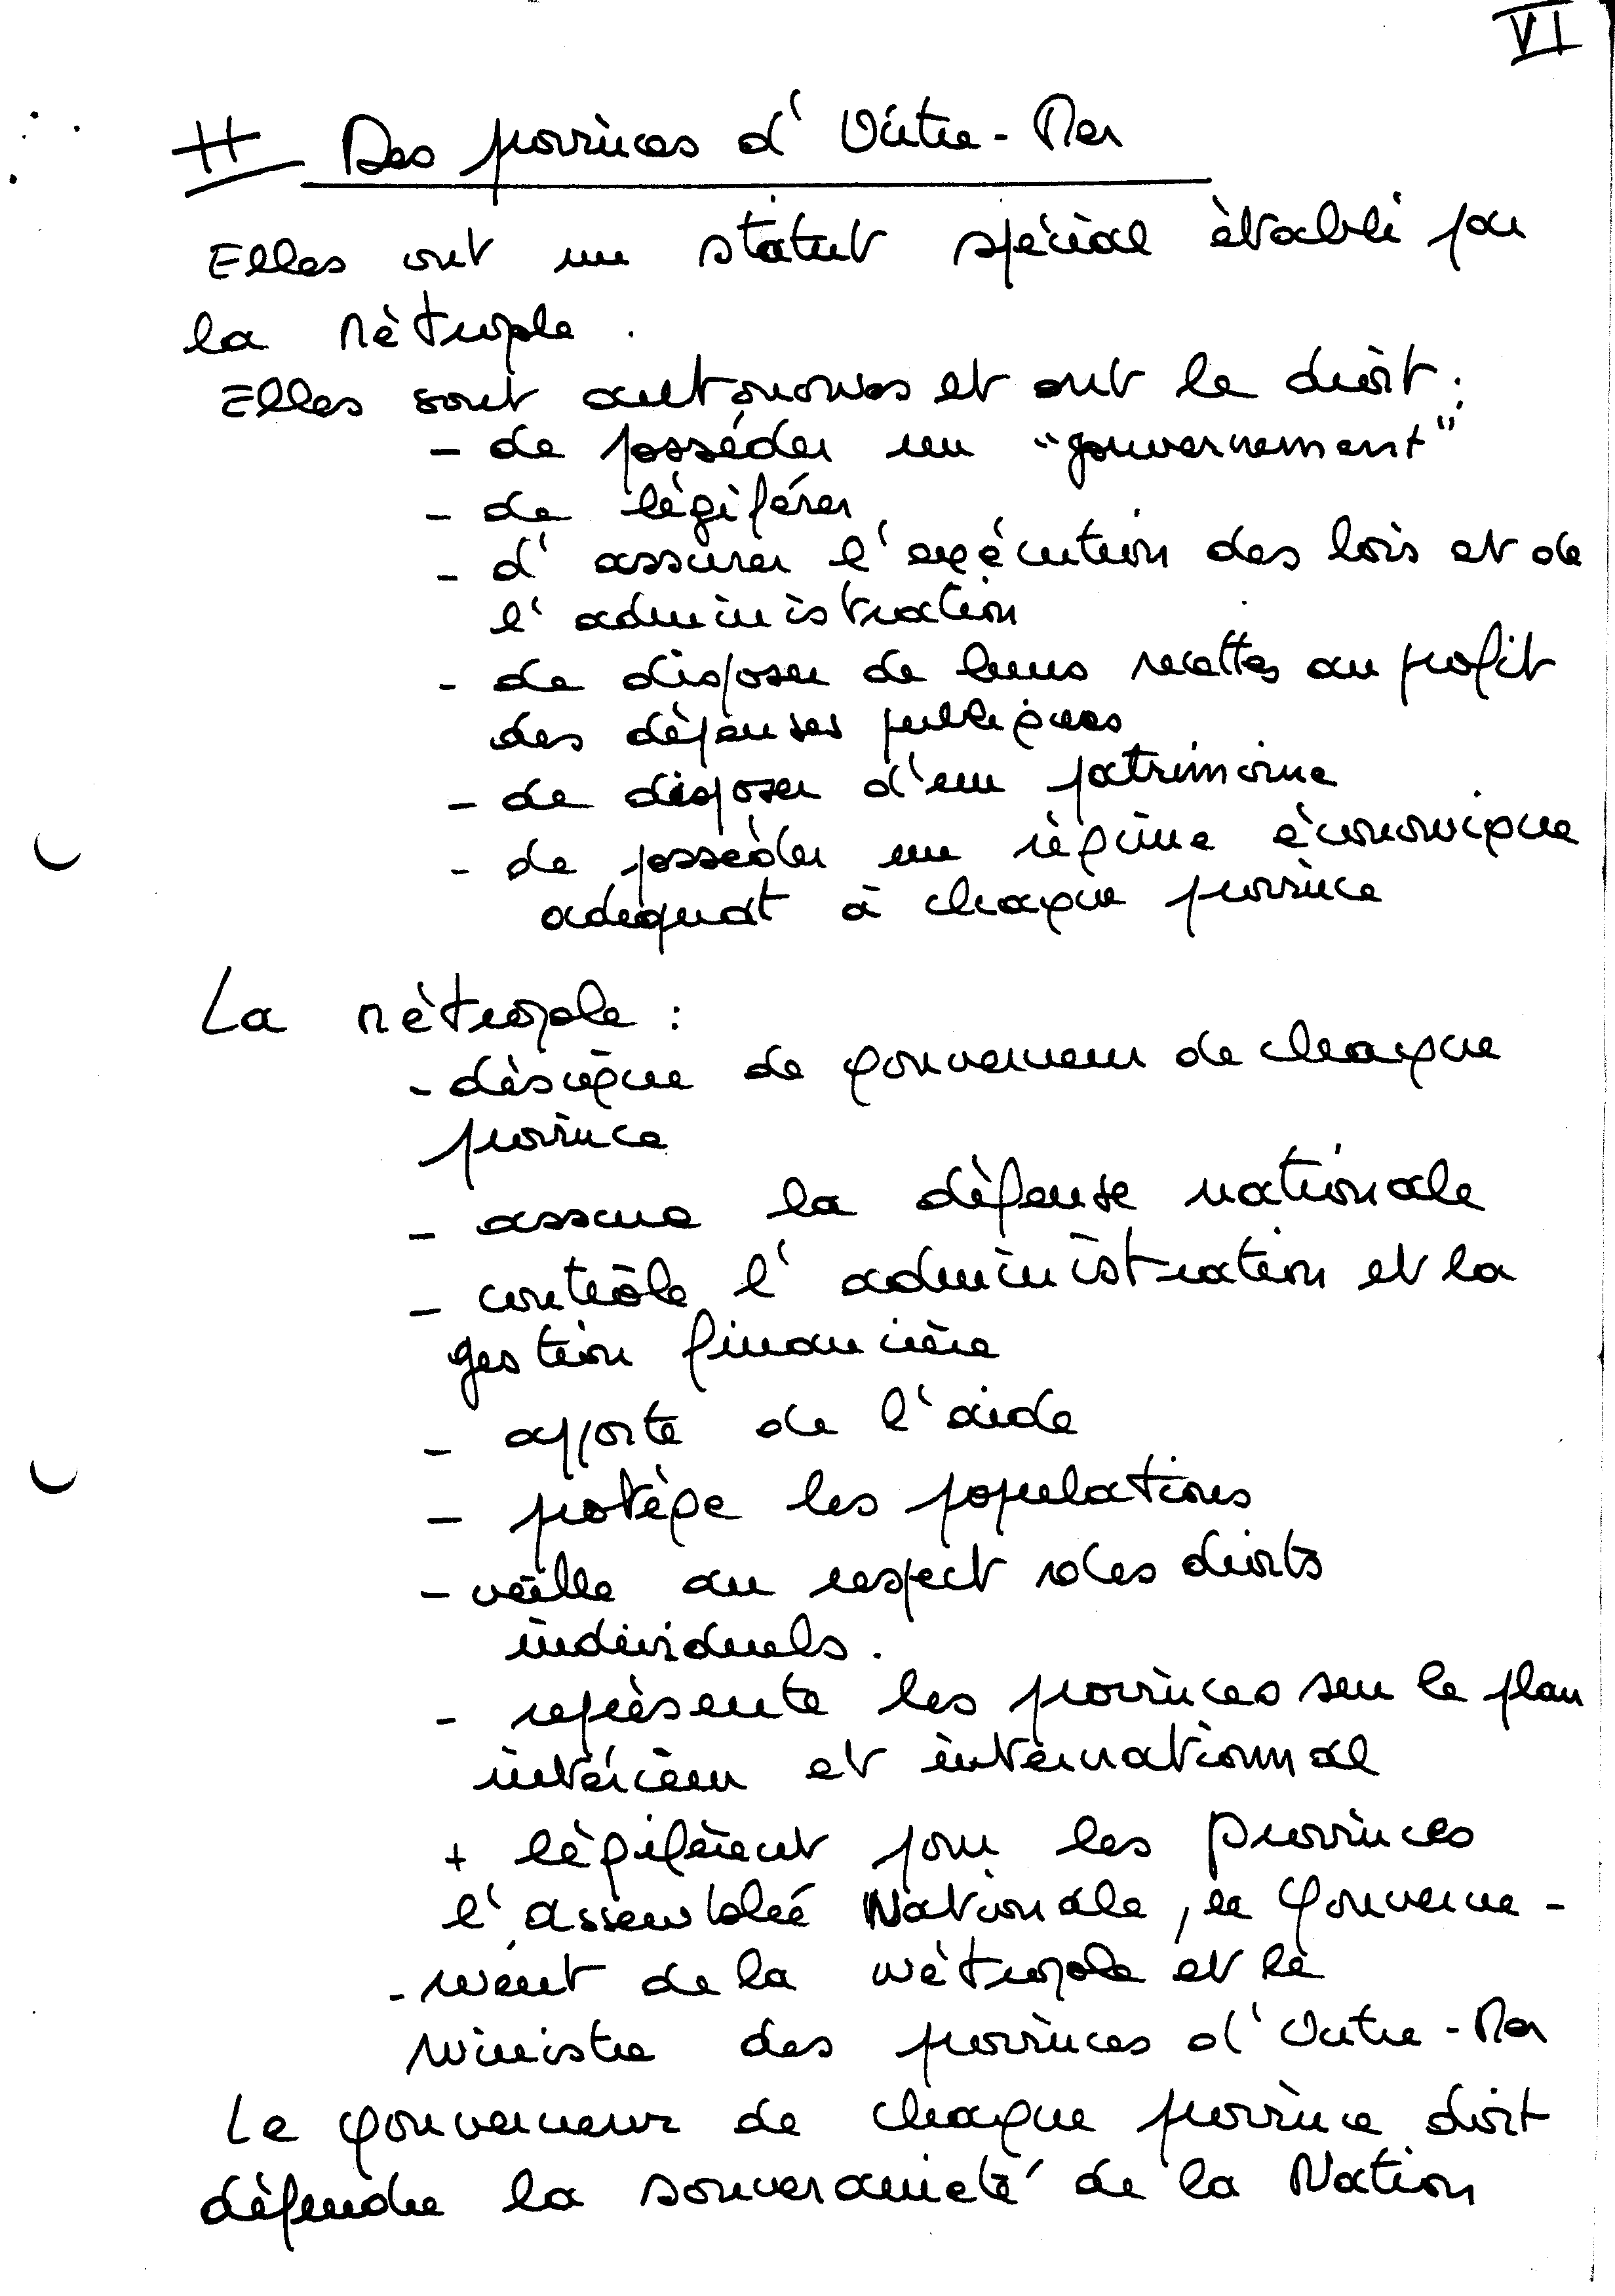 VI
H Des provinces d'Outre-Mer
Elles ont un statut spécial établi par
la Métropole.
Elles sont autonomes et ont le droit:
- de posséder un "gouvernement"
- de légiférer
- d'assurer l'exécution des lois et de
l'administration
- de disposer de leurs recettes au profit
des dépenses publiques
- de disposer d'un patrimoine
- de posséder un régime économique
adéquat à chaque province
La Métropole :
- désigne de gouverneur de chaque
province
- assure la défense nationale
- contrôle l'administration et la
gestion financière
- apporte de l'aide
- protège les populations
- veille au respect des droits
individuels.
- représente les provinces sur le plan
intérieur et international
+ légifèrent pour les Provinces
l'assemblée Nationale, le Gouverne-
-ment de la métropole et le
Ministre des provinces d'Outre-Mer
Le gouverneur de chaque province doit
défendre la souveraineté de la Nation